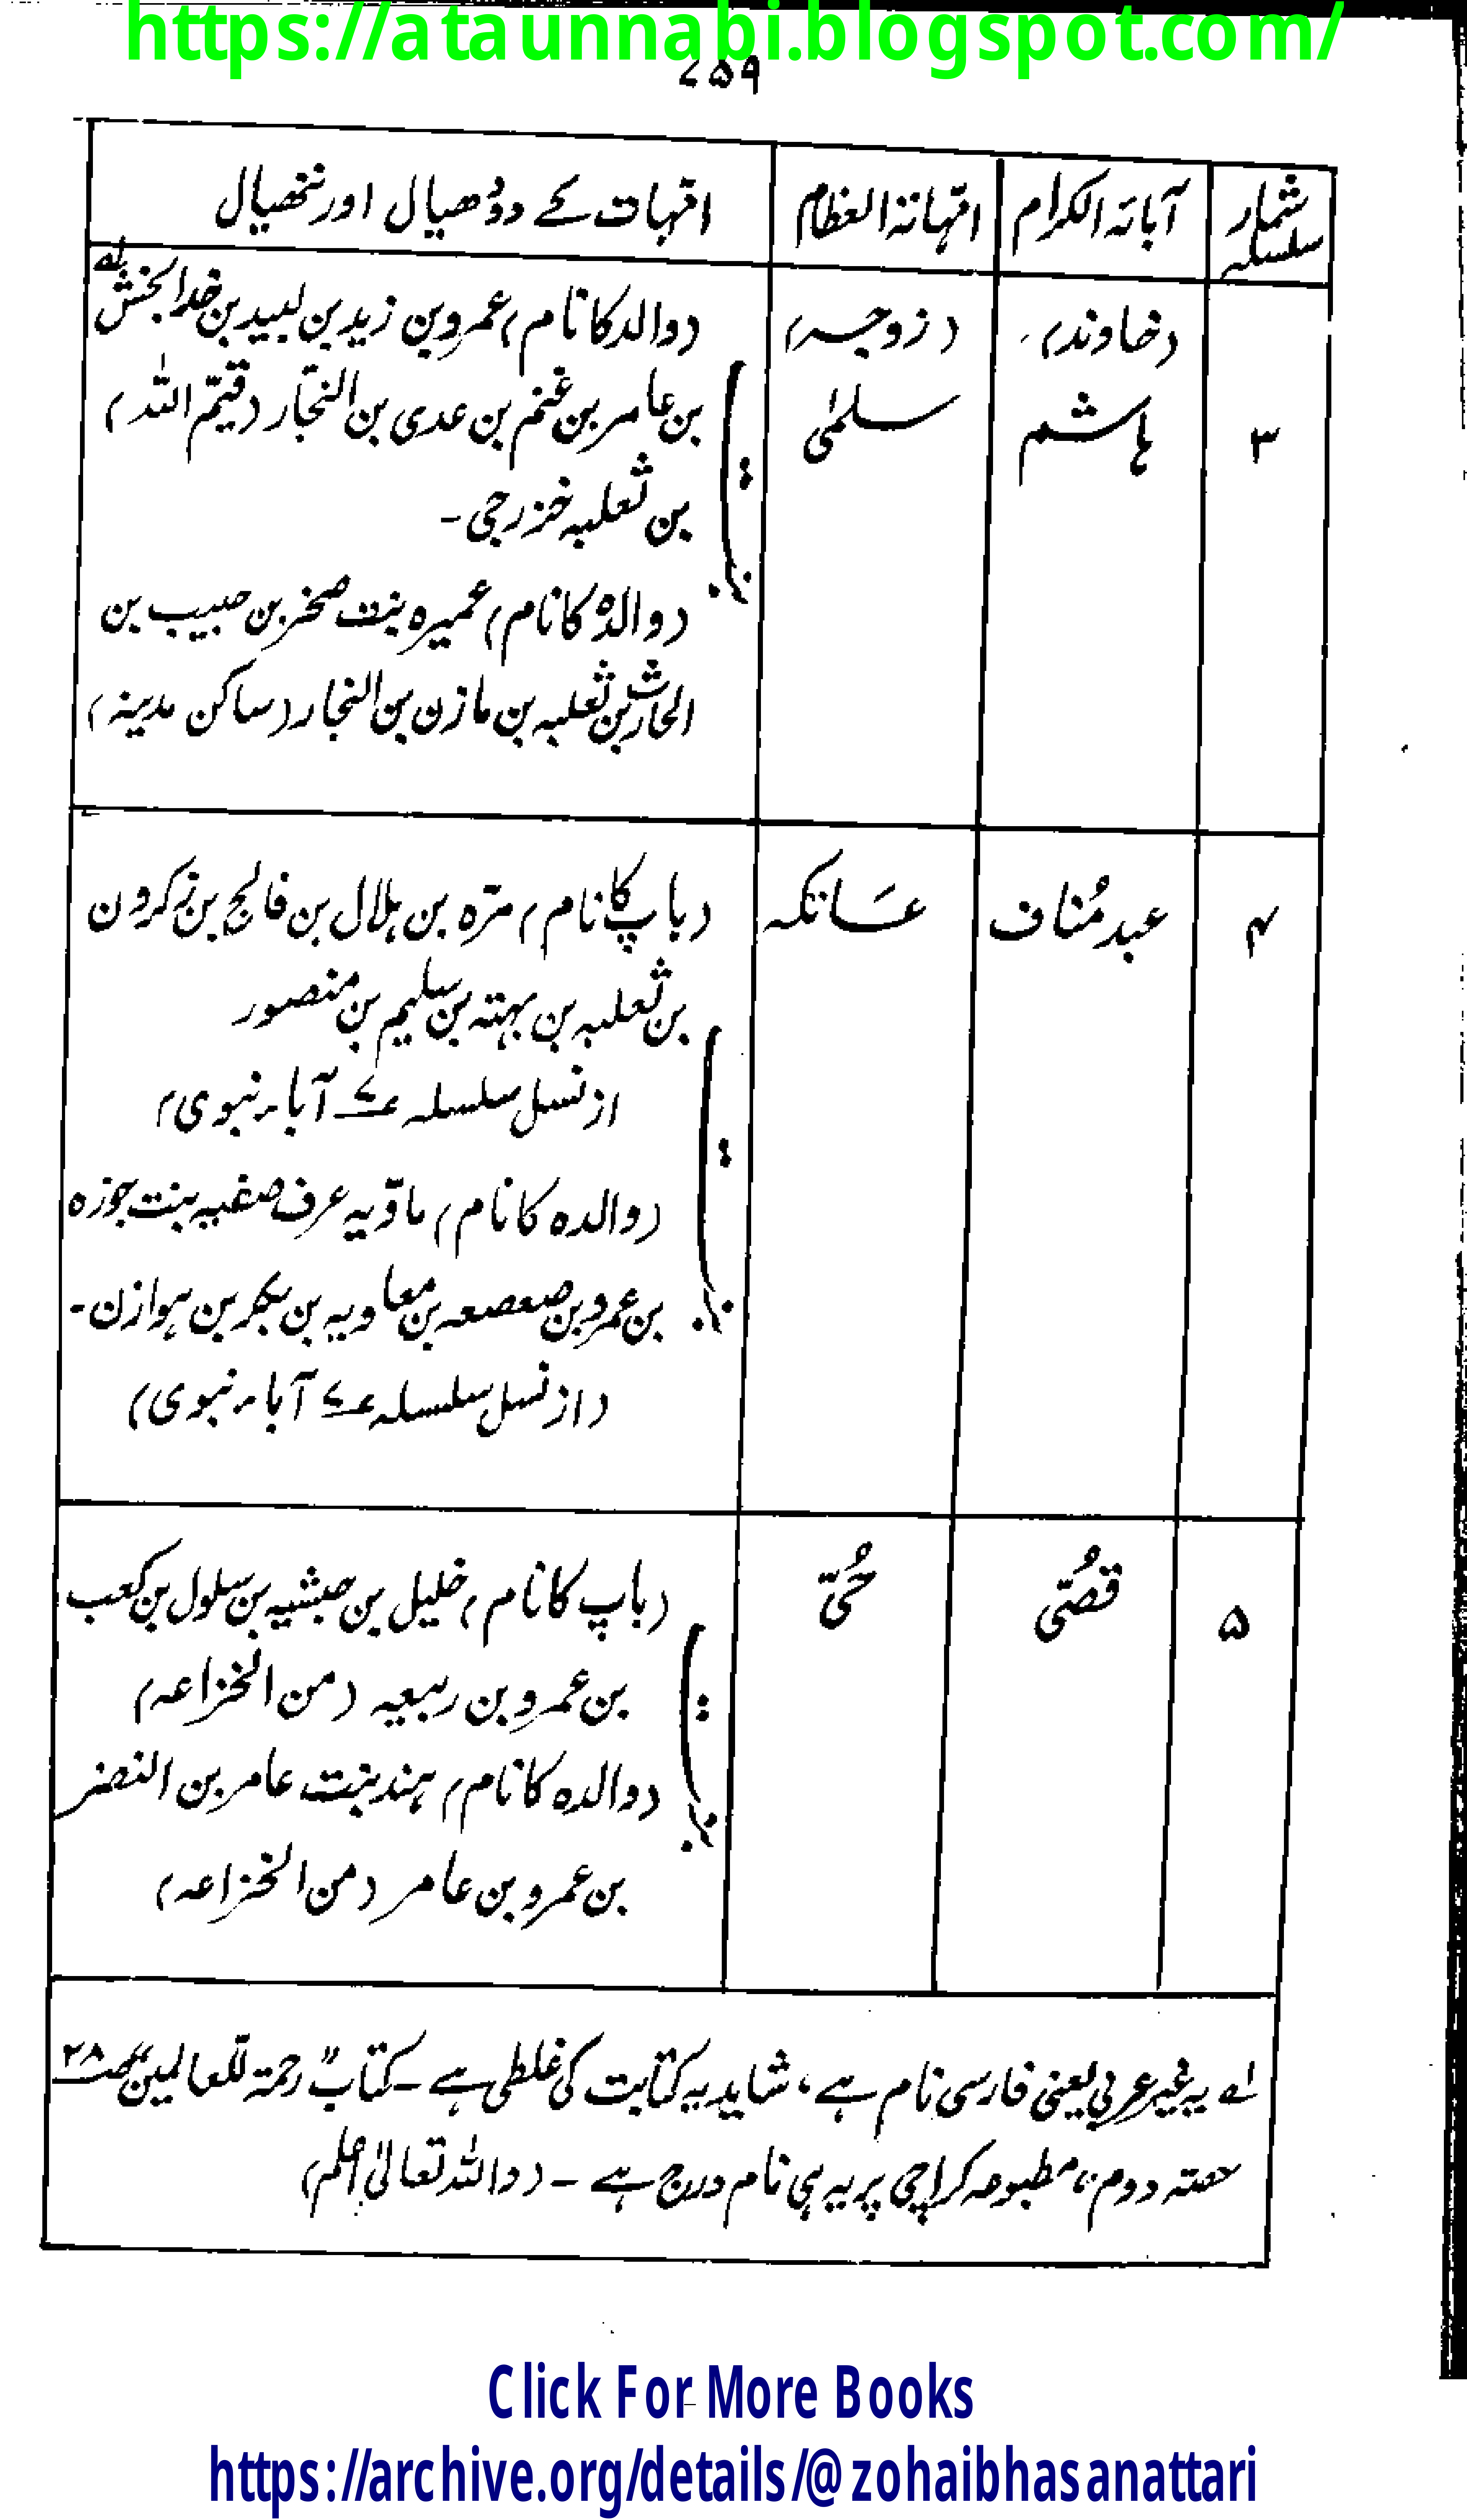 https://ataunnabi.blogspot.com/
۷۵۹
شمار سلسلہ | آبائہ الکرام | امّہاتہ العظام | امّہات کے ددّھیال اور ننھیال
(خاوند) | (زوجہ) | (والد کا نام) عمرو بن زید بن لبید بن خدا بخش لہ
۳ | ہاشم | سلمٰی | بن عامر بن غنم بن عدی بن النجّار (قیتمّ اللہ)
بن ثعلبہ خزرجی۔
(والدہ کا نام) عمیرہ بنت صخر بن حبیب بن
الحارث بن ثعلبہ بن مازن بن النجار (ساکن مدینہ)
۴ | عبد مُناف | عَاتکہ | (باپ کا نام) مرّہ بن ہلال بن فالج بن زکرون
بن ثعلبہ بن بہتہ بن سلیم بن منصور
از نسل سلسلہ ع۷ آباء نبوی)
(والدہ کا نام) ماوّیہ عرف صغیہ بنت جوزہ
بن عمرو بن صعصعہ بن معاویہ بن بکر بن ہوازن۔
(از نسل سلسلہ ع۷ آباء نبوی)
۵ | قصُیّ | حُیّ | (باپ کا نام) خلیل بن حبشیہ بن سلول بن کعب
بن عمرو بن ربیعہ (من الخزاعہ)
(والدہ کا نام) ہند بنت عامر بن النضر
بن عمرو بن عامر (من الخزاعہ)
لہ یہ غیر عربی یعنی فارسی نام ہے، شاید یہ کتابت کی غلطی ہے۔ کتاب "رحمۃ للعالمین"
حصّہ دوم، مطبوعہ کراچی پر یہ ہی نام درج ہے۔ (واللہ تعالیٰ اعلم)
Click For More Books
https://archive.org/details/@zohaibhasanattari